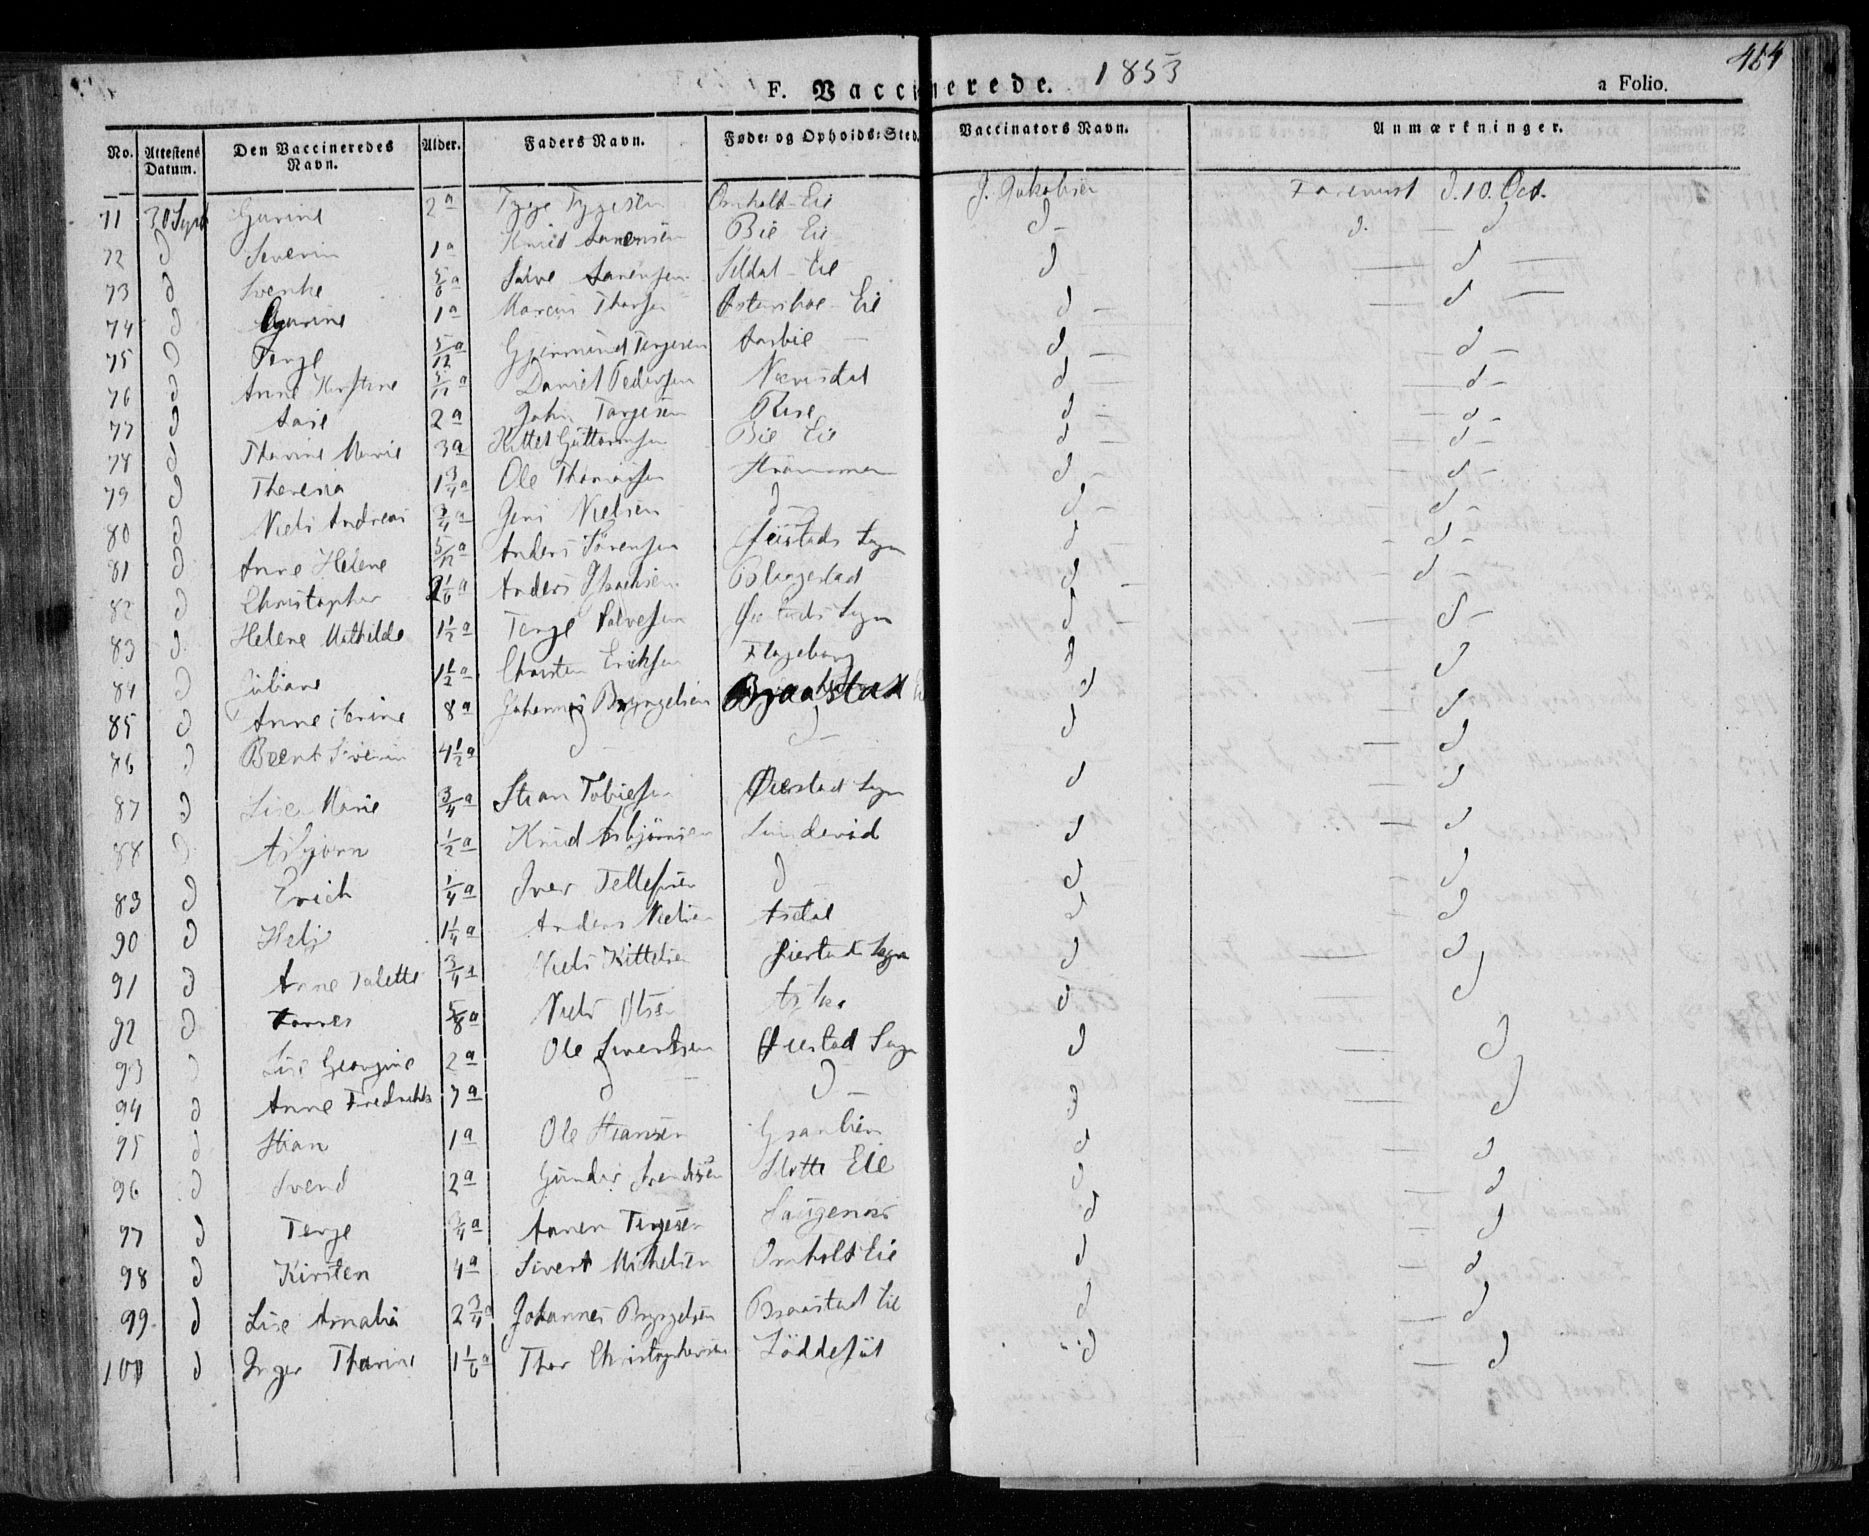 464
F. Vaccinerede. 1853
a Folio.
No. Attestens Datum. Den Vaccineredes Navn. Alder. Faders Navn. Føde- og Opholds-Sted. Vaccinators Navn. Anmærkninger.
71 30 Sept Gurine 2 a Tyge Tygesen Omholt Eie J. Jakobsen Foreviist d. 10. Oct.
72 d Severin 1 a Knud Sørensen Bie Eie d d. — d
73 d Svenke 5/6 a Salve Sørensen Seldal Eie d — d —
74 d Gurine 1 a Marcus Thorsen Østerhol Eie d — — d —
75 d Terge 5/12 a Gjermund Tergesen Aasbie d — d —
76 d Anne Kirstine 5/12 a Daniel Pedersen Nævisdal d — — d —
77 d Aase 2 a John Targesen Rise d — d —
78 d Tharine Marie 3 a Kittel Guttormsen Bie Eie d — — d —
79 d Theresia 1 3/4 a Ole Thomassen Strømmen d — d —
80 d Niels Andreas 3/4 a Jens Nielsen d — d — d —
81 d Anne Helene 5/12 a Anders Sørensen Øiestads Sogn d — - d —
82 d Christopher 2 1/6 a Anders Blaagestad d — — d —
83 d Helene Mathilde 1 1/2 a Terge Salvesen Øiestads Sogn d d —
84 d Juliane 1 1/2 a Christen Ericksen Flageborg d d
85 d Anne Serine 8 a Johannes Bryngelsen Braastad Eie d d
86 d Beent Severin 4 1/2 a d — d — d — d
87 d Lise Marie 3/4 a Stian Tobiesen Øiestad Sogn d d
88 d Asbjørn 1/2 a Knud Asbjørnsen Lundevid d d
89 d Erich 1/4 a Iver Tellefsen d — d d
90 d Helje 1 1/4 a Anders Nielsen Asdal d d
91 d Anne Talette 3/4 a Niels Kittelsen Øiestads Sogn d — d
92 d 5/8 a Niels Olsen d d
93 d Lise Georgine 2 a Ole Sivertsen Øiestad Sogn d — d
94 d Anne Fredrikke 7 a d — d — d — d
95 d Stian 1 a Ole Stiansen d d
96 d Svend 2 a Gunder Svendsen Slotte Eie d — d
97 d Terge 3/4 a Aanen Tergesen d d
98 d Kirsten 4 a Sivert Michelsen Omholt Eie d — d
99 d Lise Amalia 2 3/4 a Johannes Bryngelsen Braastad Eie d — d
100 d Inger Tharine 1 1/6 a Thor Christophersen Løddesøl d — d